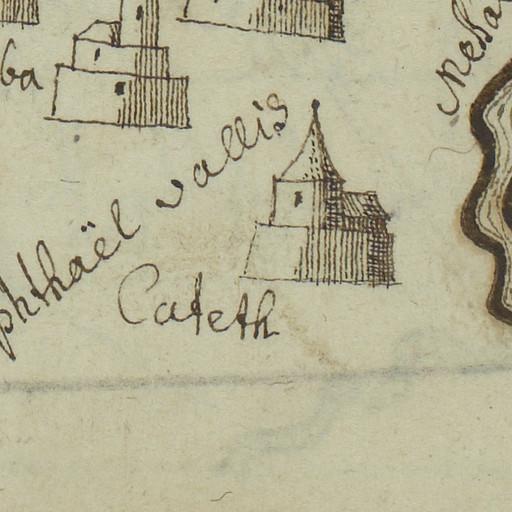 ba
phthaël vallis
Cateth